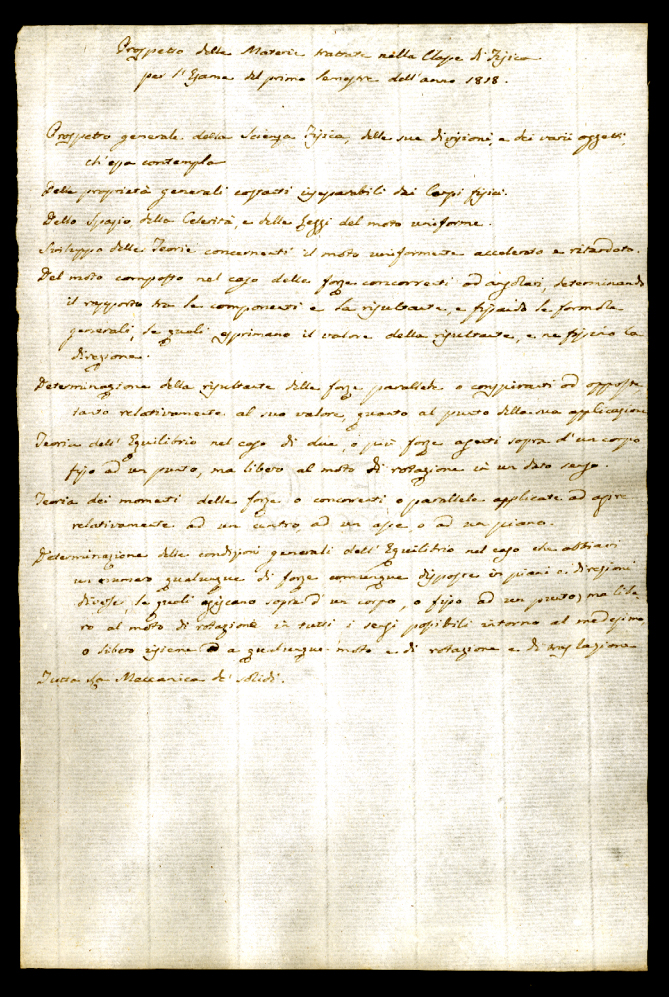 Prospetto delle Materie trattate nella Classe di Fisica
per l'Esame del primo Semestre dell'anno 1818.
Prospetto generale della Scienza Fisica, delle sue divisioni, e dei varii oggetti,
ch'essa contempla
Delle proprietà generali costanti inseparabili dai Corpi fisici.
Dello Spazio, della Celerità, e delle Leggi del moto uniforme.
Sviluppo delle Teorie concernenti il moto uniformemente accelerato e ritardato.
Del moto composto nel caso delle forze concorrenti ad angolari, determinando
il rapporto tra le componenti e la risultante, e fissando le formole
generali, le quali esprimano il valore della risultante, e ne fissino la
direzione.
Determinazione della risultante delle forze parallele o conspiranti od opposte,
tanto relativamente al suo valore, quanto al punto della sua applicazione
Teoria dell'Equilibrio nel caso di due, o più forze agenti sopra d'un corpo
fisso ad un punto, ma libero al moto di rotazione in un dato senso.
Teoria dei momenti delle forze o concorrenti o parallele applicate ad
relativamente ad un centro, ad un asse, o ad un piano.
Determinazione delle condizioni generali dell'Equilibrio nel caso che abbiavi
un numero qualunque di forze comunque disposte in piani e direzioni
diverse, le quali agiscano sopra d'un corpo, o fisso ad un punto, ma libe¬
ro al moto di rotazione in tutti i sensi possibili intorno al medesimo
o libero insieme a qualunque moto e di rotazione e di traslazione
Tutta la Meccanica de' solidi.